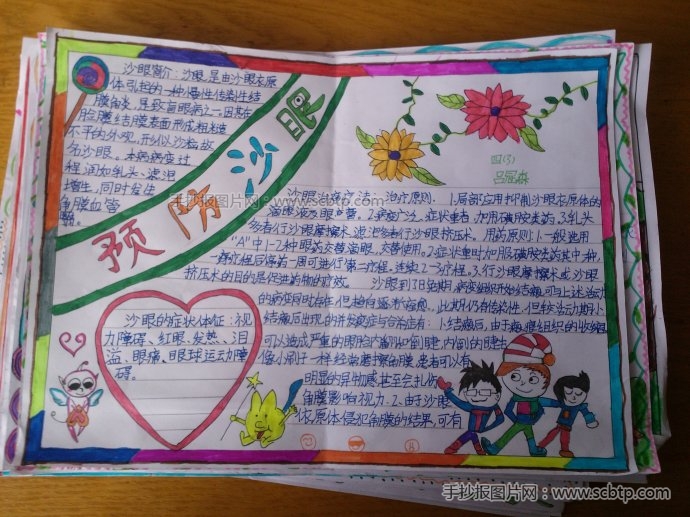 沙眼简介：沙眼,是由沙眼衣原
体引起的一种慢性传染性结
膜角炎,是致盲眼病之一。因其在
睑膜结膜表面形成粗糙
不平的外观,形似沙粒,故
名沙眼。本病病变过
程,润如乳头、滤泡
增生,同时发生
角膜血管
翳。
预防沙眼
四(3)
吕冠森
沙眼治疗疗法：治疗原则、1.局部应用抑制沙眼衣原体的
滴眼液及眼膏。2.病广泛、症状重者,加用磺胺类药。3.乳头
多者行沙眼摩擦术,滤泡多者行沙眼挤压术。用药原则：1.一般选用
"A"中1-2种眼药交替滴眼,交替使用。2.症状重时加服磺胺类药其中一种,
一疗程后停药一周可进行第二疗程,连续2-3疗程。3.行沙眼摩擦术或沙眼
挤压术的目的是促进药物的疗效。沙眼到了
的病变同时存在,但趋向逐渐
结瘢后出现的并发症与合治症有：1.结瘢后,由于瘢痕组织的收缩
可以造成严重的眼脸内翻及倒睫,内倒的睫毛
像小刷子一样经常磨擦角膜,患者可以有
明显的异物感甚至会扎伤
角膜影响视力。2.由于沙眼
衣原体侵犯角膜的结果,可有
沙眼的症状体征：视
力障碍、红眼、发热、泪
溢、眼痛、眼球运动障
碍。
手抄报图片网：www.scbtp.com
手抄报图片网：www.scbtp.com